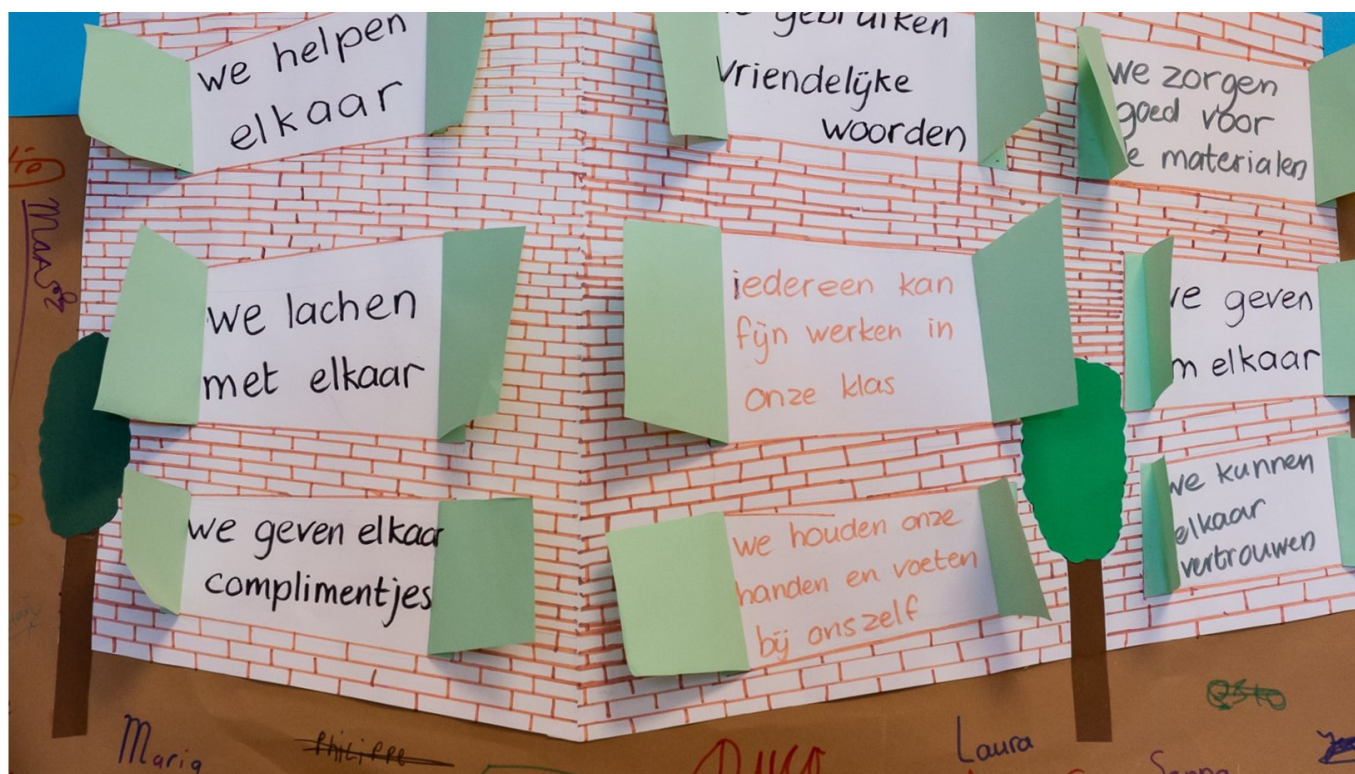 we helpen
elkaar
gebruiken
vriendelijke
woorden
we zorgen
goed voor
materialen
we lachen
met elkaar
iedereen kan
fijn werken in
onze klas
geven
elkaar
we geven elkaar
complimentjes
we houden onze
handen en voeten
bij onszelf
we kunnen
elkaar
vertrouwen
Maria
PHILIPPE
Laura